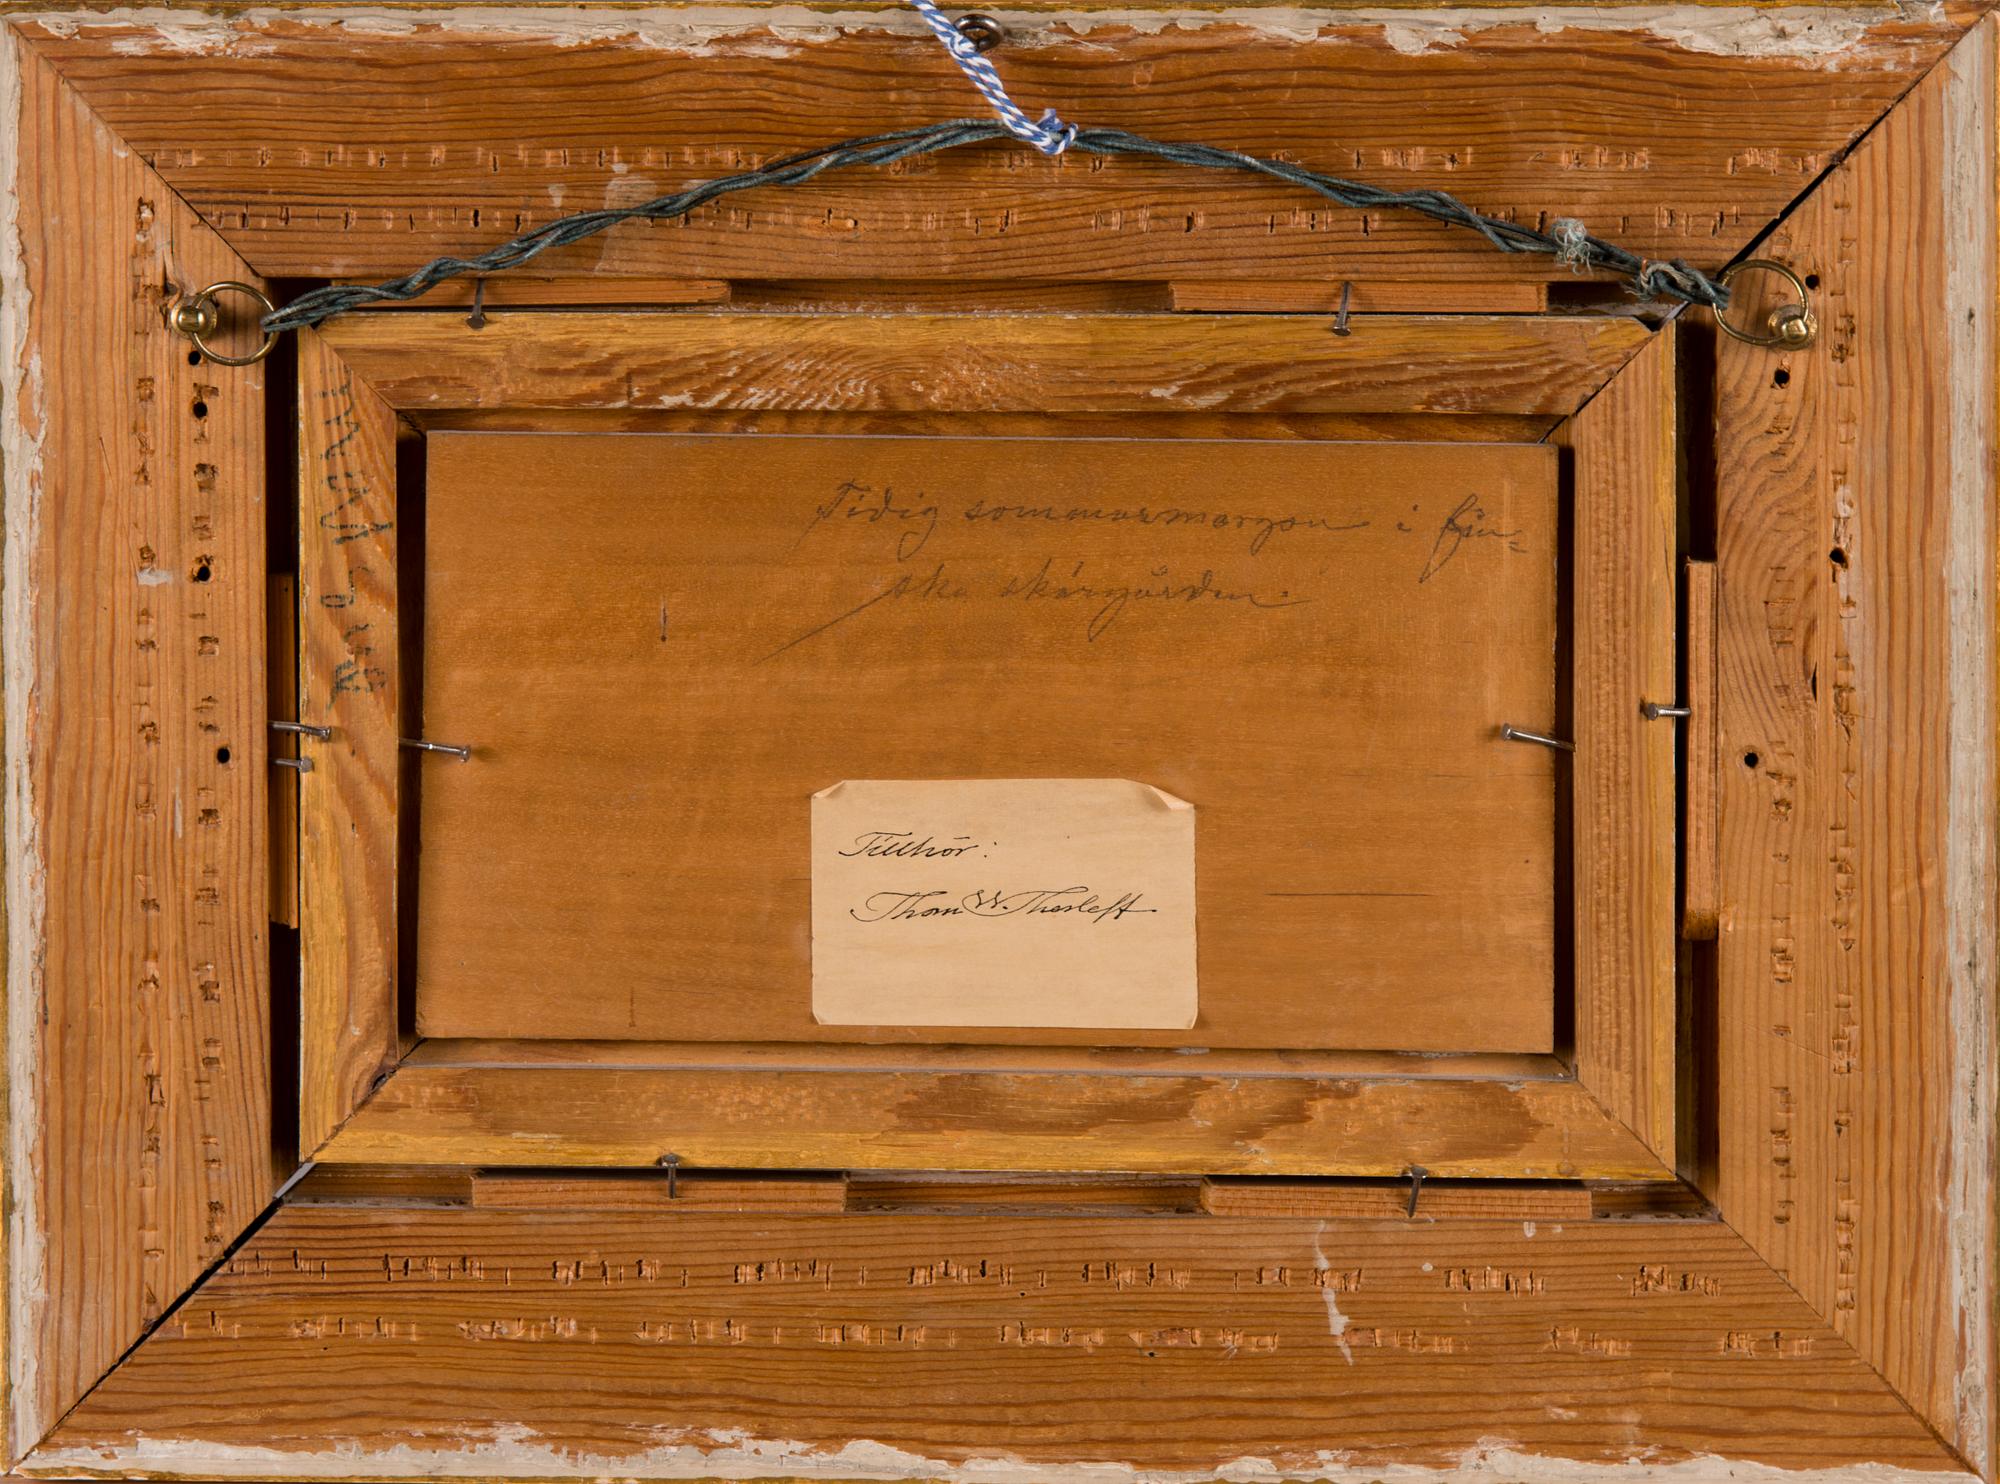 Tidig sommarmorgon i fin=
ska skärgården.
Tillhör:
Thom W. Thesleff